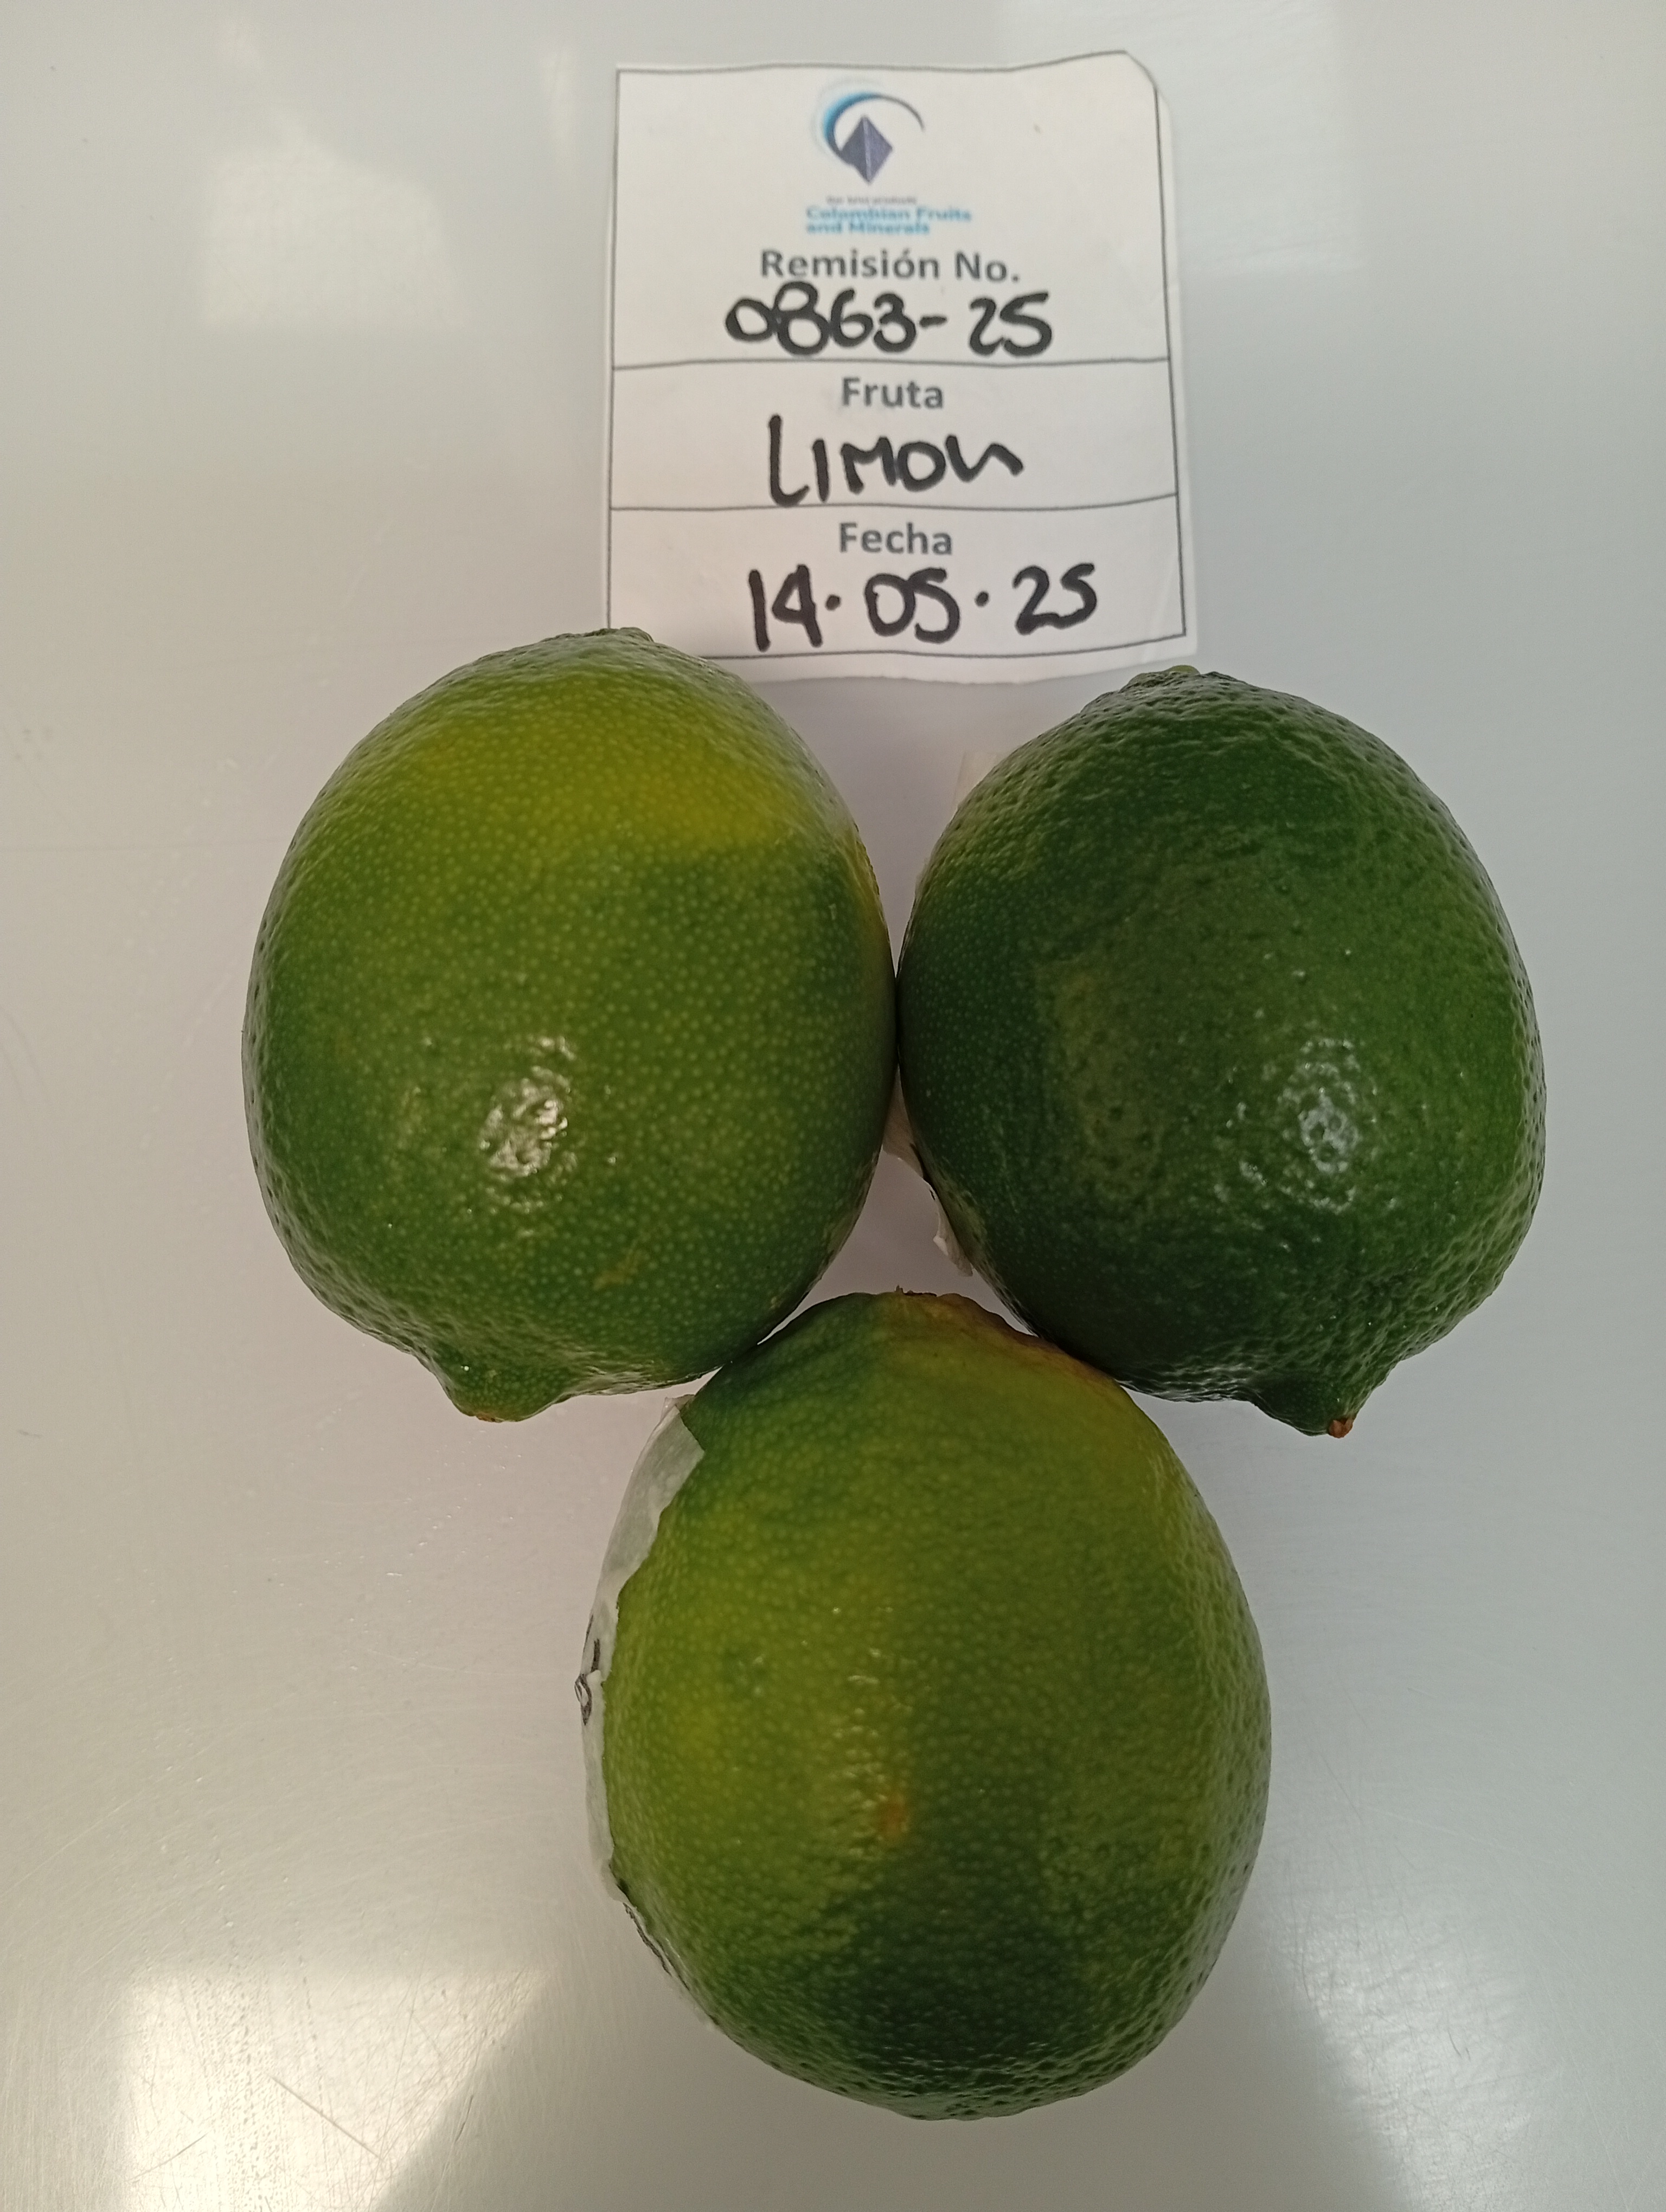 Colombian Fruits
and Minerals
Remisión No.
0863-25
Fruta
LIMON
Fecha
14.05.25